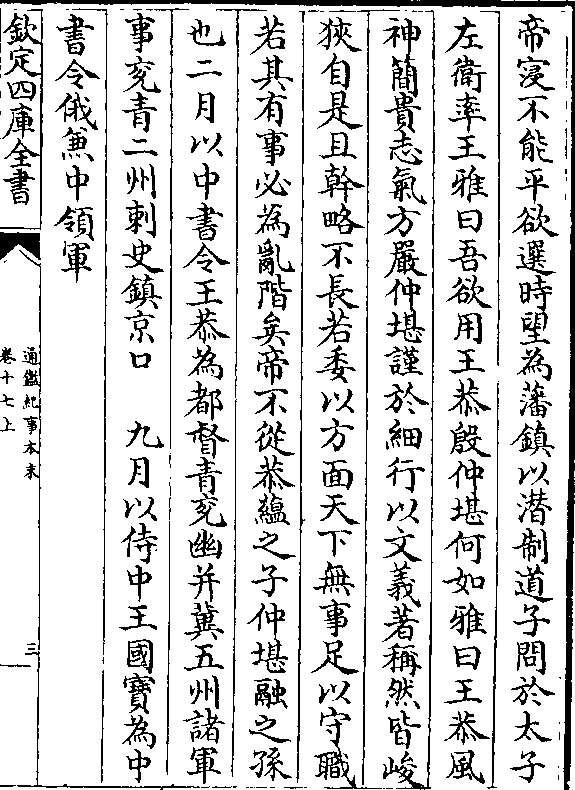 帝寖不能平欲選時望為藩鎮以潛制道子問於太子
左衛率王雅曰吾欲用王恭殷仲堪何如雅曰王恭風
神簡貴志氣方嚴仲堪謹於細行以文義著稱然皆峻
狹自是且幹略不長若委以方面天下無事足以守職
若其有事必為亂階矣帝不從恭蘊之子仲堪融之孫
也二月以中書令王恭為都督青兗幽并冀五州諸軍
事兗青二州刺史鎮京口　九月以侍中王國寶為中
書令俄兼中領軍
欽定四庫全書
通鑑紀事本末
卷十七上
三